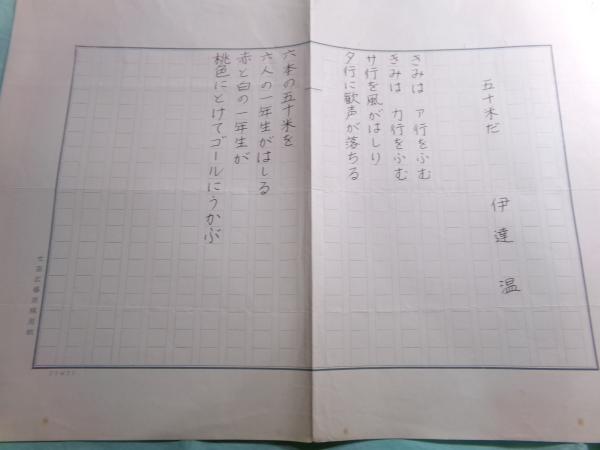 五十米だ
伊達 温
きみは ア行をふむ
きみは カ行をふむ
サ行を風がはしり
タ行に歓声が落ちる
六本の五十米を
六人の一年生がはしる
赤と白の一年生が
桃色にとけてゴールにうかぶ